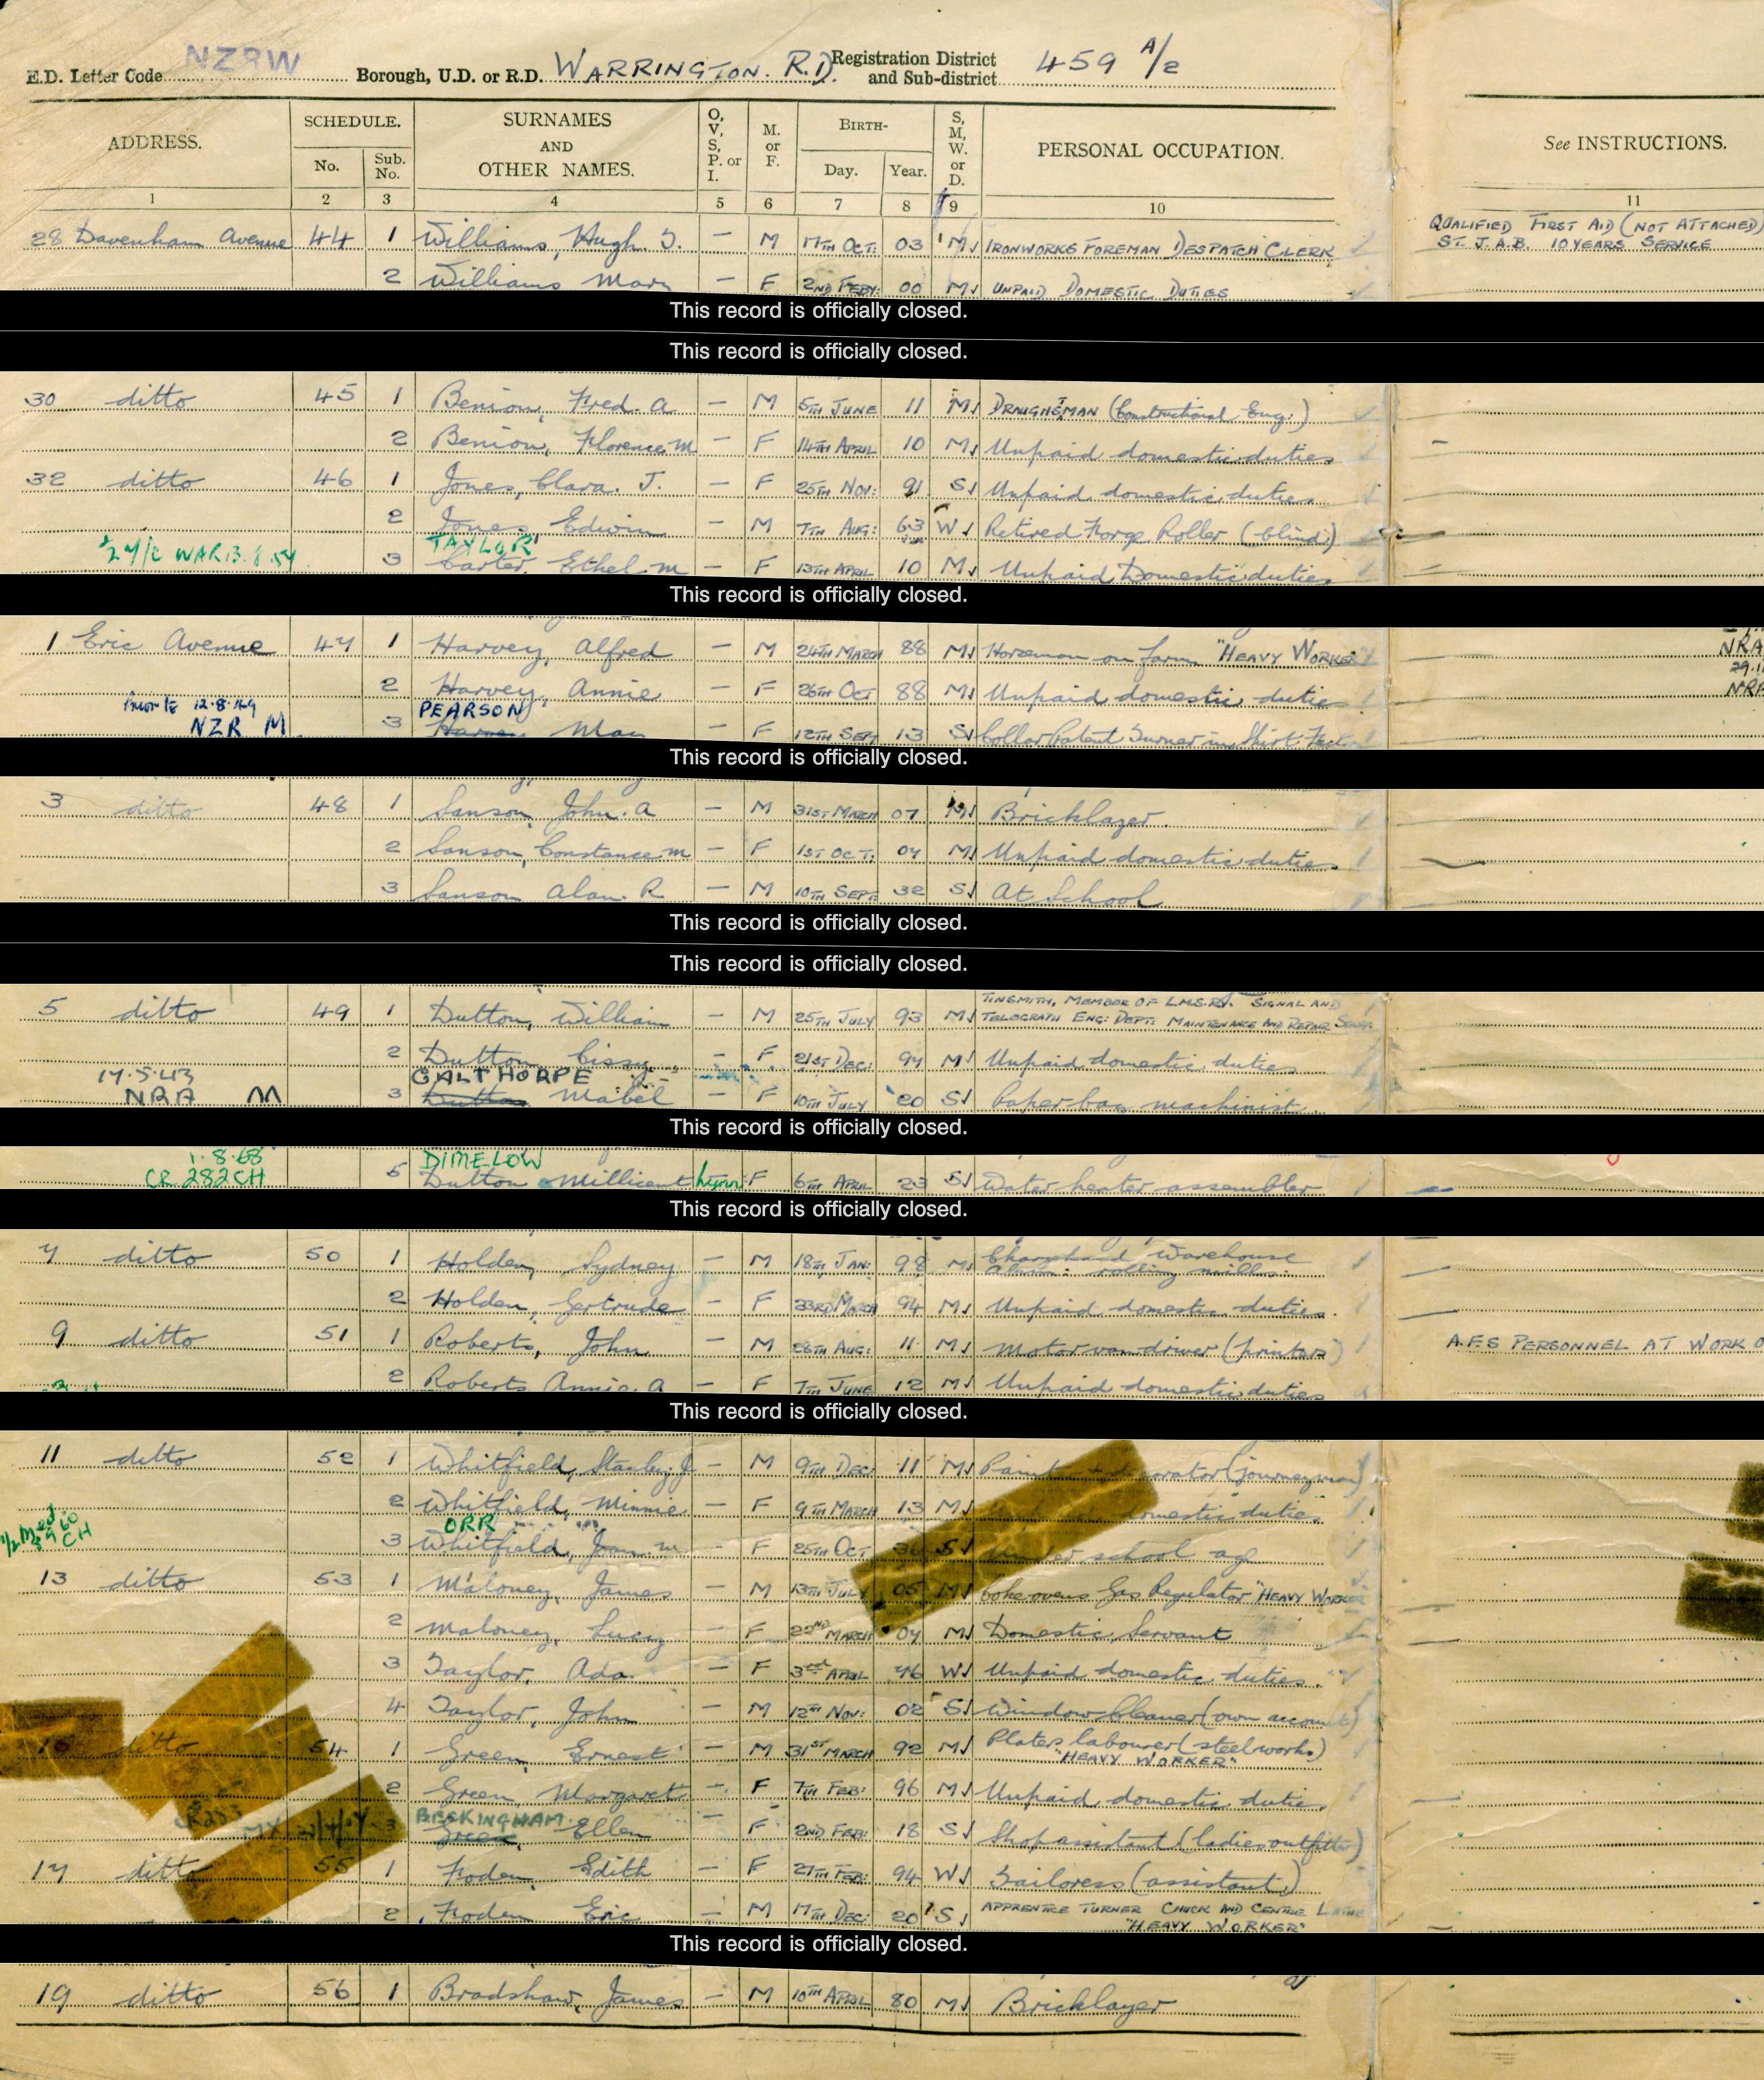 E.D. Letter Code NZRW Borough, U.D. or R.D. WARRINGTON. R.D. Registration District and Sub-district 459 A/2
ADDRESS. SCHEDULE. SURNAMES AND OTHER NAMES. O, V, S, P. or I. M. or F. BIRTH- S, M, W. or D. PERSONAL OCCUPATION. See INSTRUCTIONS.
No. Sub. No. Day. Year.
1 2 3 4 5 6 7 8 9 10 11
28 Davenham Avenue 44 1 Williams, Hugh — M 17TH OCT: 03 M IRONWORKS FOREMAN DESPATCH CLERK QUALIFIED FIRST AID (NOT ATTACHED)
ST. J.A.B. 10 YEARS SERVICE
2 Williams Mary — F 2ND FEBY: 00 M UNPAID DOMESTIC DUTIES
This record is officially closed.
This record is officially closed.
30 ditto 45 1 Benion, Fred. A. — M 5TH JUNE 11 M DRAUGHTSMAN (Constructional Eng:)
2 Benion, Florence M — F 14TH APRIL 10 M Unpaid domestic duties
32 ditto 46 1 Jones, Clara. J. — F 25TH NOV: 91 S Unpaid domestic duties
2 Jones, Edwin — M 7TH AUG: 63 W Retired Forge Roller (blind)
TAYLOR
3 Carter, Ethel M — F 13TH APRIL 10 M Unpaid Domestic duties
This record is officially closed.
1 Eric Avenue 47 1 Harvey, Alfred — M 24TH MARCH 88 M Horseman on farm "HEAVY WORKER" NRA
2 Harvey, Annie — F 26TH OCT 88 M Unpaid domestic duties
12.8.49 PEARSON
NZR M 3 Harvey May — F 12TH SEPT 13 S Collar Patent Turner in Shirt Factory
This record is officially closed.
3 ditto 48 1 Sanson, John. A — M 31ST MARCH 07 M Bricklayer.
2 Sanson, Constance M — F 1ST OCT. 07 M Unpaid domestic duties
3 Sanson Alan. R — M 10TH SEPT 32 S At School
This record is officially closed.
This record is officially closed.
5 ditto 49 1 Dutton, William — M 25TH JULY 93 M TINSMITH, MEMBER OF L.M.S. RY. SIGNAL AND
TELEGRAPH ENG: DEPT: MAINTENANCE AND REPAIR
2 Dutton Cissy — F 21ST DEC: 94 M Unpaid domestic duties
17.5.43 GALTHORPE
NRA M 3 Dutton Mabel — F 10TH JULY 20 S Paper bag machinist
This record is officially closed.
1.8.68 DIMELOW
CR 282 CH 5 Dutton Millicent Lynn F 6TH APRIL 23 S Water heater assembler
This record is officially closed.
7 ditto 50 1 Holden, Sydney — M 18TH JAN: 98 M Chargehand Warehouse
Alum: rolling mills.
2 Holden, Gertrude — F 23RD MARCH 94 M Unpaid domestic duties.
9 ditto 51 1 Roberts, John — M 28TH AUG: 11 M Motor van driver (printers) A.F.S PERSONNEL AT WORK
2 Roberts Annie. A — F 7TH JUNE 12 M Unpaid domestic duties
This record is officially closed.
11 ditto 52 1 Whitfield, Stanley. J — M 9TH DEC: 11 M Painter + decorator (journeyman)
2 Whitfield, Minnie — F 9TH MARCH 13 M domestic duties
ORR
3 Whitfield, Joan. M — F 25TH OCT 36 S under school age
13 ditto 53 1 Maloney, James — M 13TH JULY 05 M Coke ovens Gas Regulator "HEAVY WORKER"
2 Maloney, Lucy — F 22ND MARCH 07 M Domestic Servant
3 Taylor, Ada. — F 3RD APRIL 76 W Unpaid domestic duties.
4 Taylor, John — M 12TH NOV: 02 S Window Cleaner (own account)
ditto 54 1 Green, Ernest — M 31ST MARCH 92 M Platers labourer (steelworks)
"HEAVY WORKER"
2 Green, Margaret — F 7TH FEB: 96 M Unpaid domestic duties
BECKINGHAM
3 Green, Ellen — F 2ND FEB: 18 S Shop assistant (ladies outfitter)
17 ditto 55 1 Foden, Edith — F 27TH FEB: 94 W Tailoress (assistant)
2 Foden Eric — M 17TH DEC: 20 S APPRENTICE TURNER CHUCK AND CENTRE LATHE
"HEAVY WORKER"
This record is officially closed.
19 ditto 56 1 Bradshaw, James — M 10TH APRIL 80 M Bricklayer